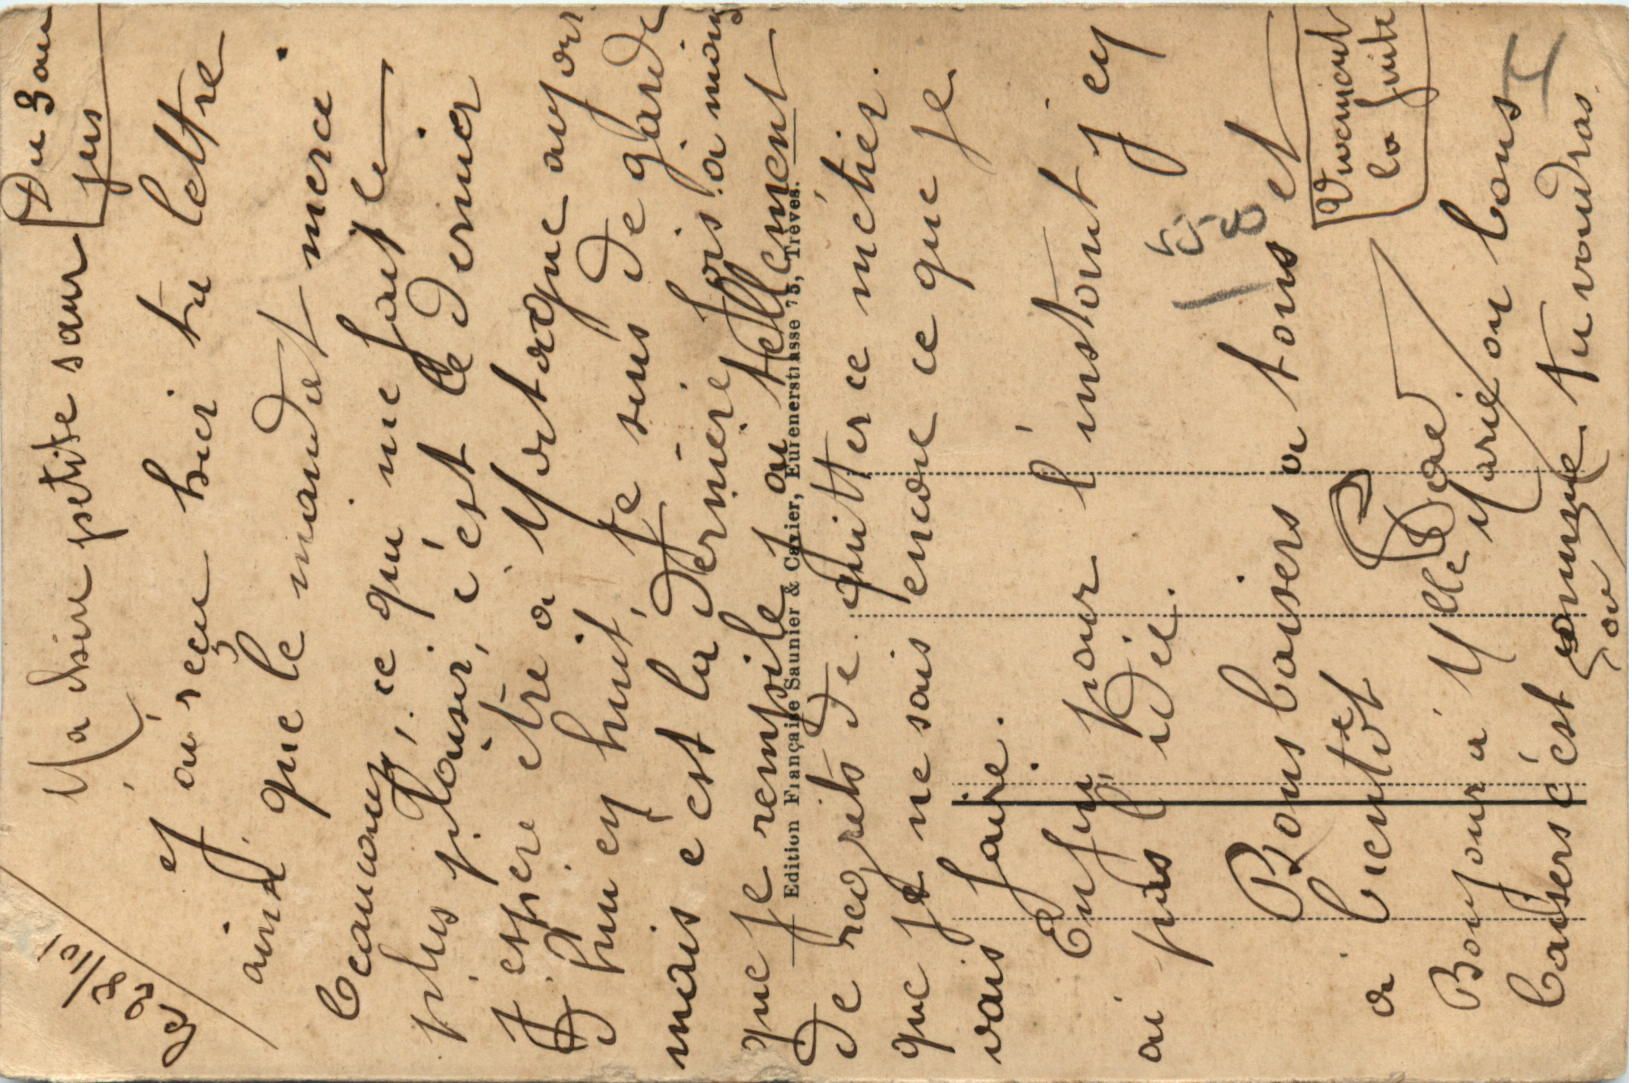 Le 28/10/
Du 3 au
jus
Ma chère petite sœur
J'ai reçu hier ta lettre
ainsi que le mandat merci
beaucoup, ce qui me fait le
plus plaisir, c'est le dernier
J'espère être à Mortagne aujour
d'hui en huit, je suis de garde
mais c'est la dernière fois à moins
que je rempile j'ai tellement
de regrets de quitter ce métier.
que je ne sais encore ce que je
vais faire.
Enfin pour l'instant j'en
ai pas l'idée.
Bons baisers à tous et
à bientôt
Bonjour à Melle Marie ou bons
baisers c'est comme tu voudras.
ou
Vivement
la fuite
158
Edition Française Saunier & Cavier, Eurenerstrasse 75, Trèves.